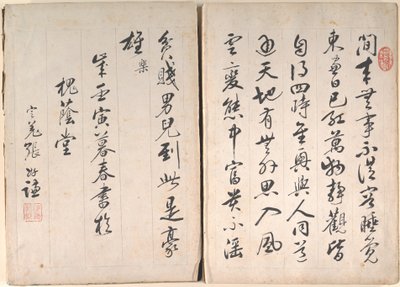 閒來無事不從容睡覺
東窗日已紅萬物靜觀皆
自得四時佳興與人同道
通天地有形外思入風
雲變態中富貴不淫
貧賤男兒到此是豪
雄
樂
歲壬寅暮春書於
槐蔭堂
張好謙